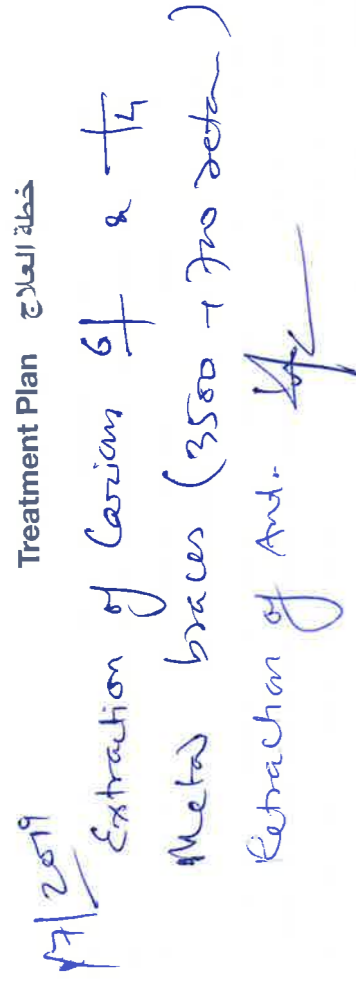 Treatment Plan خطة العلاج
7/2019
Extraction of Carious 6 & 4
Metal braces (3500 + 700 retain)
Retraction of Ant.